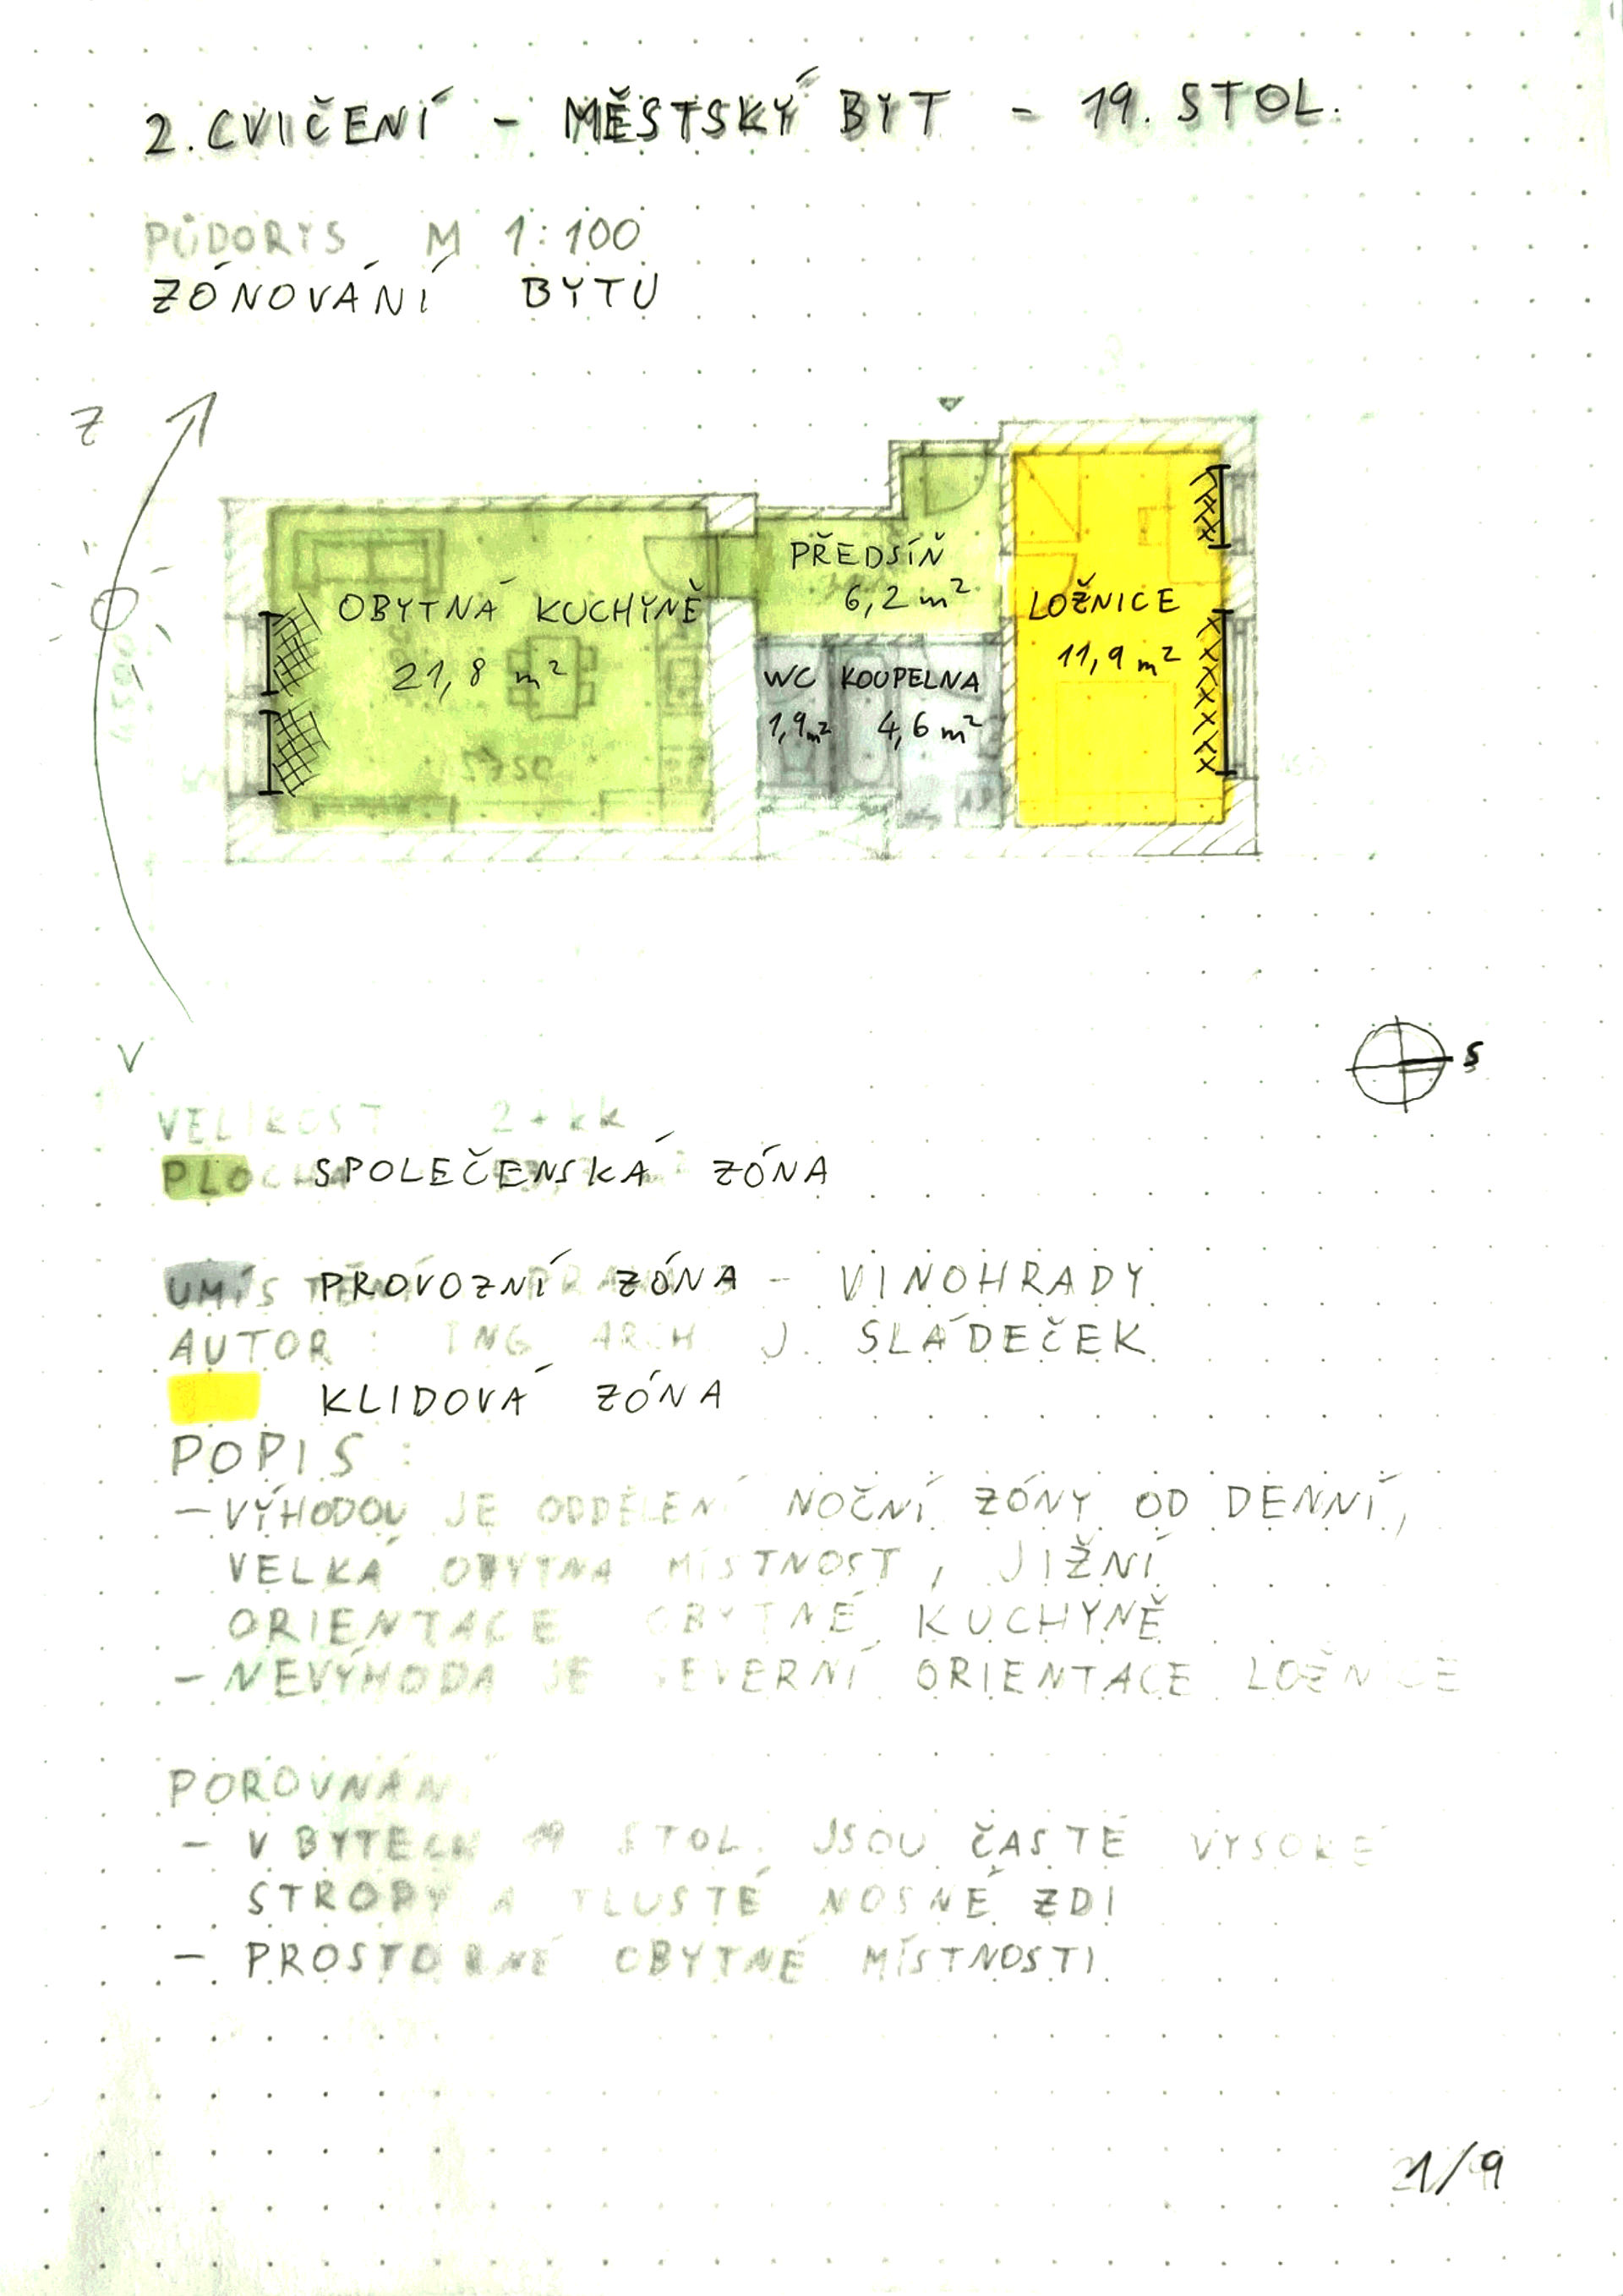 2. CVIČENÍ - MĚSTSKÝ BYT - 19. STOL.
PŮDORYS M 1:100
ZÓNOVÁNÍ BYTU
Z
OBYTNÁ KUCHYNĚ
21,8 m²
5750
4500
PŘEDSÍŇ
6,2 m²
WC
1,9 m²
KOUPELNA
4,6 m²
LOŽNICE
11,9 m²
V
S
VELIKOST : 2+kk
SPOLEČENSKÁ ZÓNA
PROVOZNÍ ZÓNA - VINOHRADY
AUTOR : ING ARCH J. SLÁDEČEK
KLIDOVÁ ZÓNA
POPIS :
- VÝHODOU JE ODDĚLENÍ NOČNÍ ZÓNY OD DENNÍ,
VELKÁ OBYTNÁ MÍSTNOST, JIŽNÍ
ORIENTACE OBYTNÉ KUCHYNĚ
- NEVÝHODA JE SEVERNÍ ORIENTACE LOŽNICE
POROVNÁNÍ
- V BYTECH 19 STOL. JSOU ČASTÉ VYSOKÉ
STROPY A TLUSTÉ NOSNÉ ZDI
- PROSTORNÉ OBYTNÉ MÍSTNOSTI
1/9